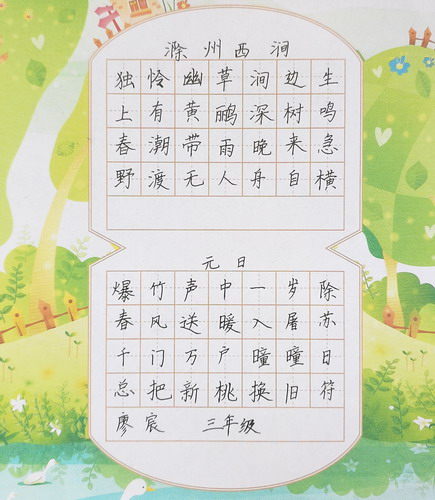 滁州西涧
独怜幽草涧边生
上有黄鹂深树鸣
春潮带雨晚来急
野渡无人舟自横
元日
爆竹声中一岁除
春风送暖入屠苏
千门万户曈曈日
总把新桃换旧符
廖宸 三年级